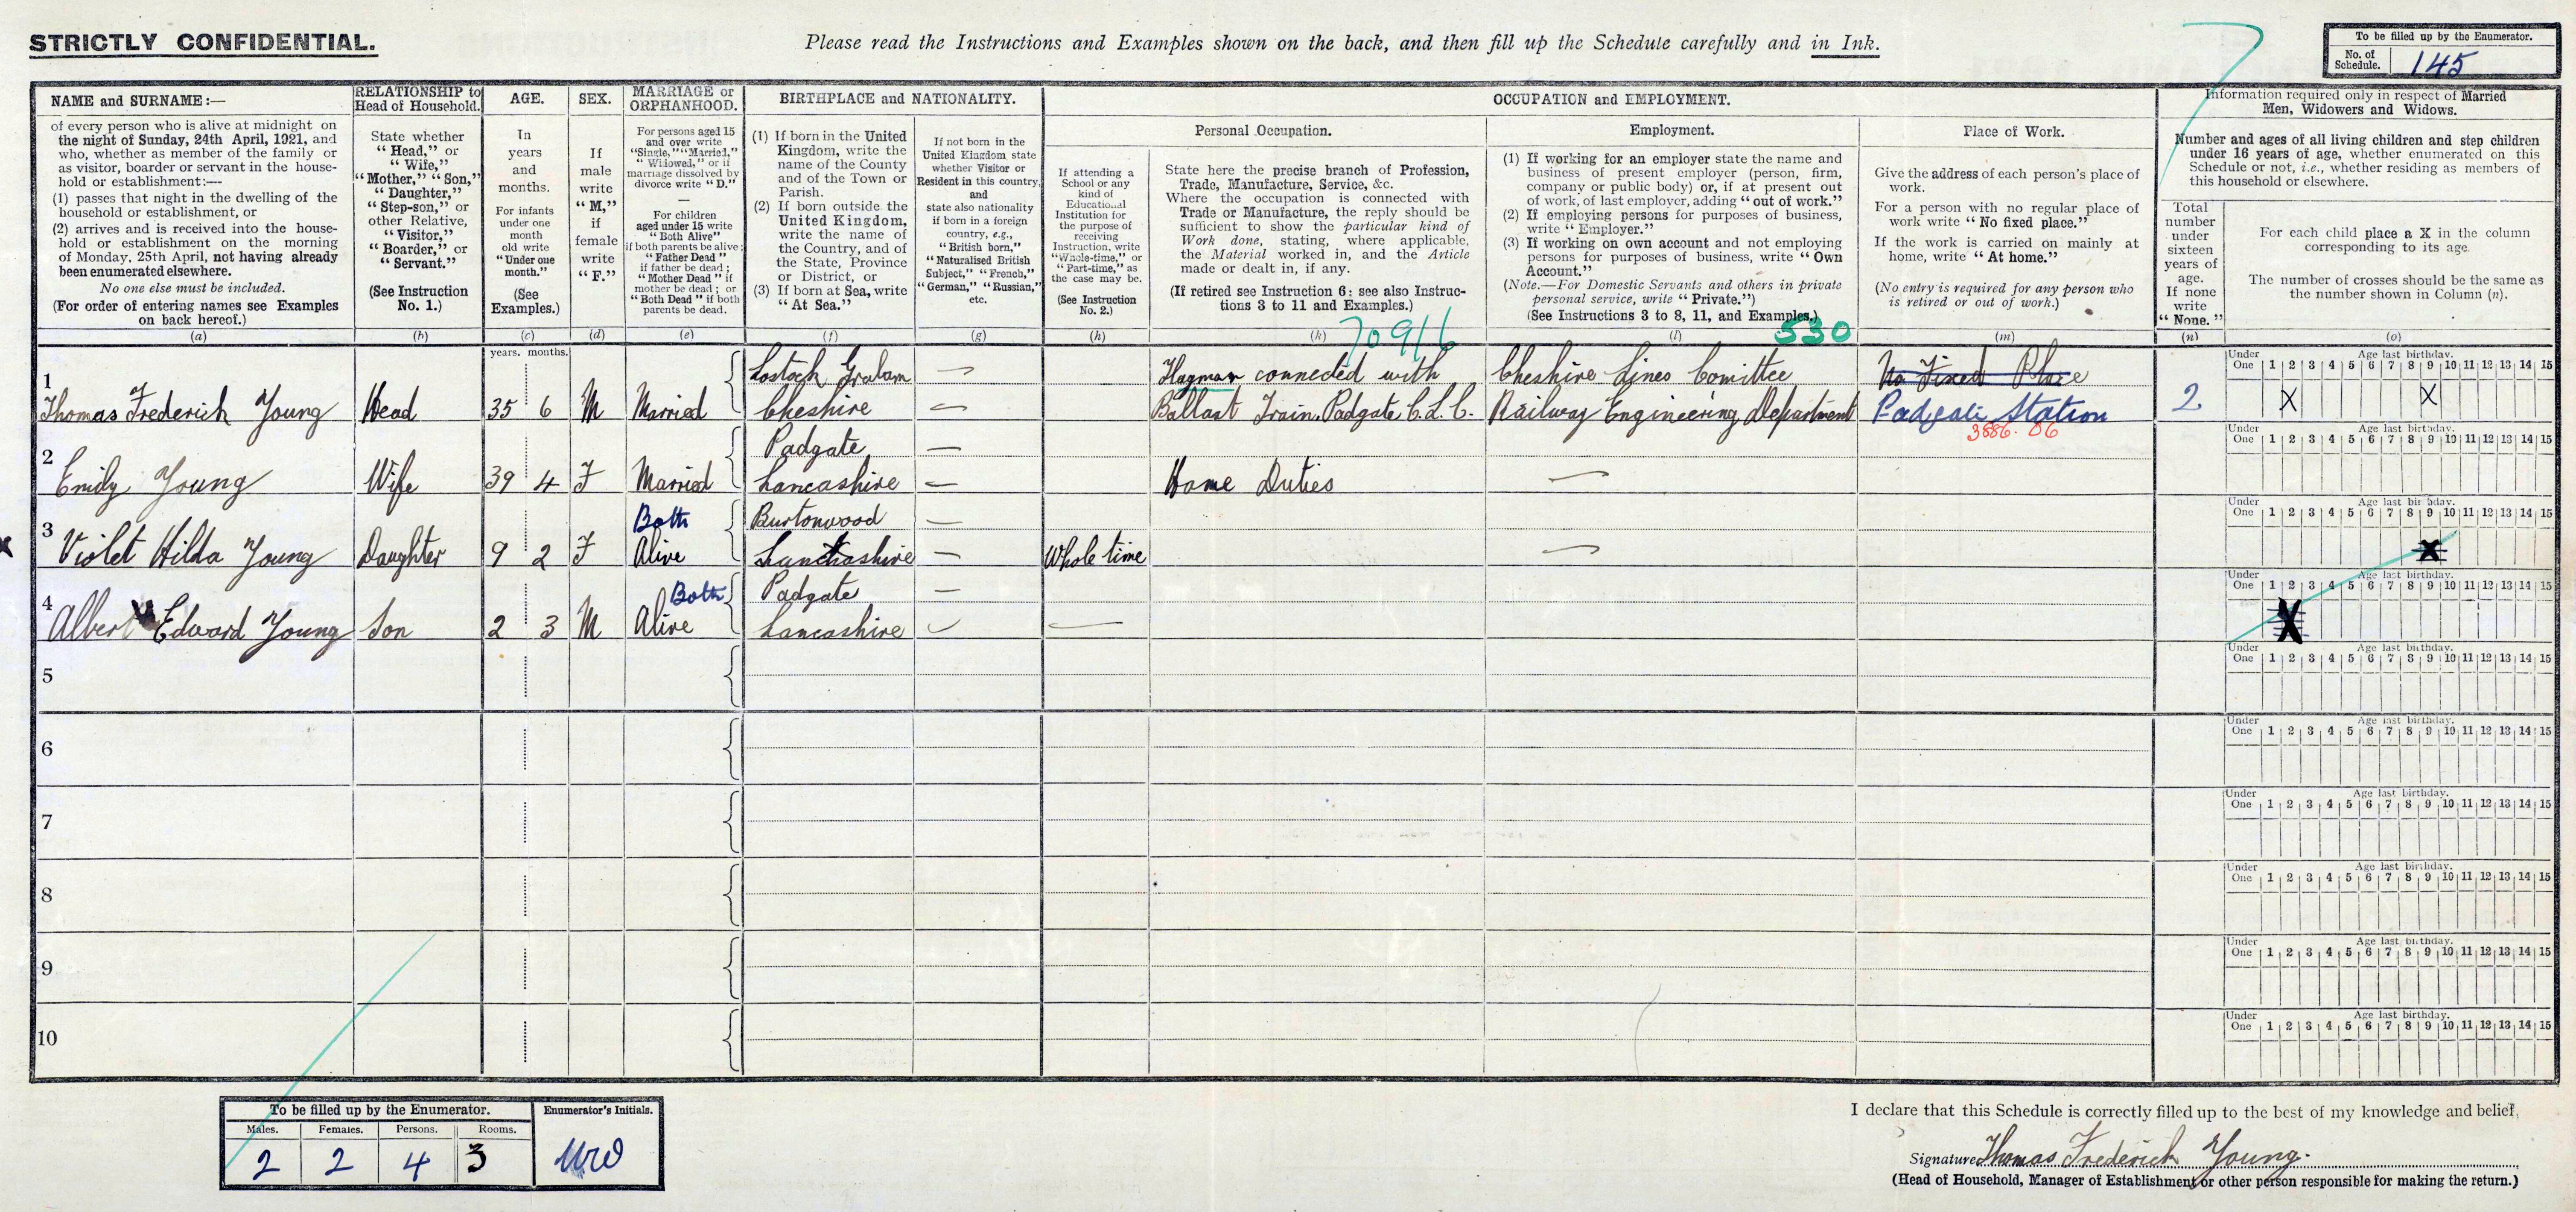 STRICTLY CONFIDENTIAL.
Please read the Instructions and Examples shown on the back, and then fill up the Schedule carefully and in Ink.
To be filled up by the Enumerator.
No. of Schedule. 145
NAME and SURNAME:—
of every person who is alive at midnight on
the night of Sunday, 24th April, 1921, and
who, whether as member of the family or
as visitor, boarder or servant in the house-
hold or establishment:—
(1) passes that night in the dwelling of the
household or establishment, or
(2) arrives and is received into the house-
hold or establishment on the morning
of Monday, 25th April, not having already
been enumerated elsewhere.
No one else must be included.
(For order of entering names see Examples
on back hereof.)
(a)
RELATIONSHIP to
Head of Household.
State whether
"Head," or
"Wife,"
"Mother," "Son,"
"Daughter,"
"Step-son," or
other Relative,
"Visitor,"
"Boarder," or
"Servant."
(See Instruction
No. 1.)
(b)
AGE.
In
years
and
months.
For infants
under one
month
old write
"Under one
month."
(See
Examples.)
(c)
SEX.
If
male
write
"M,"
if
female
write
"F."
(d)
MARRIAGE or
ORPHANHOOD.
For persons aged 15
and over write
"Single," "Married,"
"Widowed," or if
marriage dissolved by
divorce write "D."
—
For children
aged under 15 write
"Both Alive"
if both parents be alive;
"Father Dead"
if father be dead;
"Mother Dead" if
mother be dead; or
"Both Dead" if both
parents be dead.
(e)
BIRTHPLACE and NATIONALITY.
(1) If born in the United
Kingdom, write the
name of the County
and of the Town or
Parish.
(2) If born outside the
United Kingdom,
write the name of
the Country, and of
the State, Province
or District, or
(3) If born at Sea, write
"At Sea."
(f)
If not born in the
United Kingdom state
whether Visitor or
Resident in this country,
and
state also nationality
if born in a foreign
country, e.g.,
"British born,"
"Naturalised British
Subject," "French,"
"German," "Russian,"
etc.
(g)
OCCUPATION and EMPLOYMENT.
If attending a
School or any
kind of
Educational
Institution for
the purpose of
receiving
Instruction, write
"Whole-time," or
"Part-time," as
the case may be.
(See Instruction
No. 2.)
(h)
Personal Occupation.
State here the precise branch of Profession,
Trade, Manufacture, Service, &c.
Where the occupation is connected with
Trade or Manufacture, the reply should be
sufficient to show the particular kind of
Work done, stating, where applicable,
the Material worked in, and the Article
made or dealt in, if any.
(If retired see Instruction 6: see also Instruc-
tions 3 to 11 and Examples.)
(k)
70916
Employment.
(1) If working for an employer state the name and
business of present employer (person, firm,
company or public body) or, if at present out
of work, of last employer, adding "out of work."
(2) If employing persons for purposes of business,
write "Employer."
(3) If working on own account and not employing
persons for purposes of business, write "Own
Account."
(Note.—For Domestic Servants and others in private
personal service, write "Private.")
(See Instructions 3 to 8, 11, and Examples.)
(l)
530
Place of Work.
Give the address of each person's place of
work.
For a person with no regular place of
work write "No fixed place."
If the work is carried on mainly at
home, write "At home."
(No entry is required for any person who
is retired or out of work.)
(m)
Information required only in respect of Married
Men, Widowers and Widows.
Number and ages of all living children and step children
under 16 years of age, whether enumerated on this
Schedule or not, i.e., whether residing as members of
this household or elsewhere.
Total
number
under
sixteen
years of
age.
If none
write
"None."
(n)
For each child place a X in the column
corresponding to its age.
The number of crosses should be the same as
the number shown in Column (n).
(o)
years. months.
1 Thomas Frederick Young Head 35 6 M Married
Lostock Gralam —
Cheshire —
Flagman connected with
Ballast Train Padgate C.L.C.
Cheshire Lines Comittee
Railway Engineering Department
No Fixed Place
Padgate Station
3886. 06
2
Under One Age last birthday. 1 2 3 4 5 6 7 8 9 10 11 12 13 14 15
X X
2 Emily Young Wife 39 4 F Married
Padgate —
Lancashire —
Home Duties —
Under One Age last birthday. 1 2 3 4 5 6 7 8 9 10 11 12 13 14 15
x
3 Violet Hilda Young Daughter 9 2 F Both Alive
Burtonwood —
Lancashire —
Whole time —
Under One Age last birthday. 1 2 3 4 5 6 7 8 9 10 11 12 13 14 15
X
4 Albert Edward Young Son 2 3 M Both Alive
Padgate —
Lancashire
—
Under One Age last birthday. 1 2 3 4 5 6 7 8 9 10 11 12 13 14 15
X
5
Under One Age last birthday. 1 2 3 4 5 6 7 8 9 10 11 12 13 14 15
6
Under One Age last birthday. 1 2 3 4 5 6 7 8 9 10 11 12 13 14 15
7
Under One Age last birthday. 1 2 3 4 5 6 7 8 9 10 11 12 13 14 15
8
Under One Age last birthday. 1 2 3 4 5 6 7 8 9 10 11 12 13 14 15
9
Under One Age last birthday. 1 2 3 4 5 6 7 8 9 10 11 12 13 14 15
10
Under One Age last birthday. 1 2 3 4 5 6 7 8 9 10 11 12 13 14 15
To be filled up by the Enumerator.
Males. Females. Persons. Rooms.
2 2 4 3
Enumerator's Initials.
I declare that this Schedule is correctly filled up to the best of my knowledge and belief.
Signature Thomas Frederick Young.
(Head of Household, Manager of Establishment or other person responsible for making the return.)